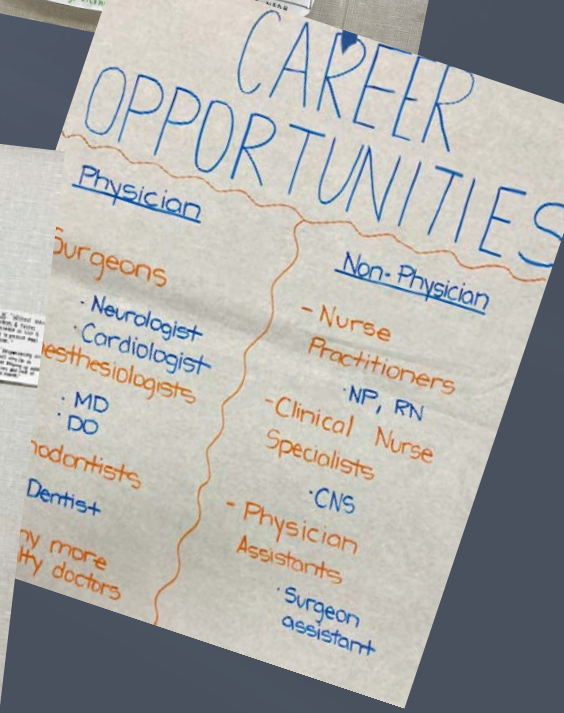 CAREER
OPPORTUNITIES
Physician
Surgeons
· Neurologist
· Cardiologist
esthesiologists
· MD
· DO
odontists
Dentist
more
doctors
Non-Physician
- Nurse
Practitioners
· NP, RN
- Clinical Nurse
Specialists
· CNS
- Physician
Assistants
· Surgeon
assistant